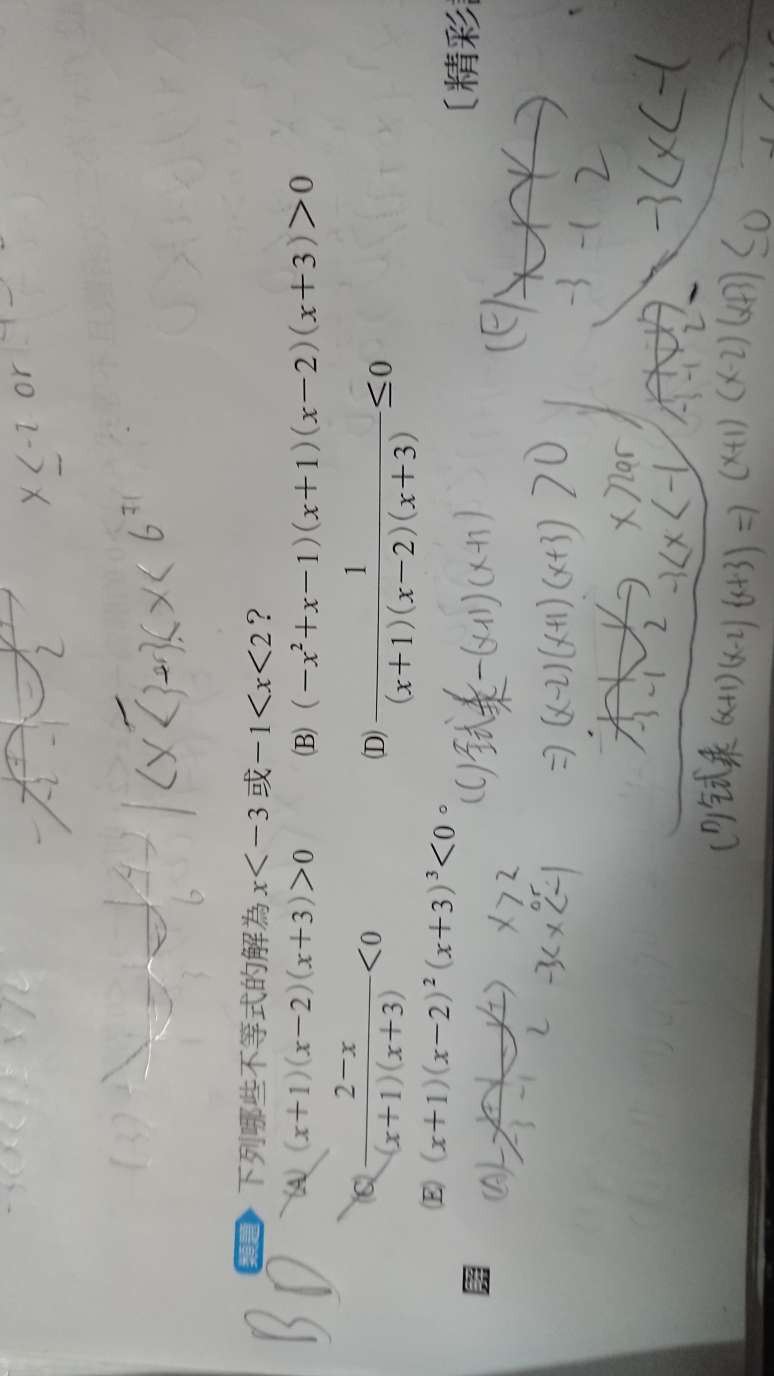 x≤-2 or
1<x<3 or 3<x<6
類題 下列哪些不等式的解為 x<-3 或 -1<x<2?
(A) (x+1)(x-2)(x+3)>0 (B) (-x²+x-1)(x+1)(x-2)(x+3)>0
(C) \frac{2-x}{(x+1)(x+3)}<0 (D) \frac{1}{(x+1)(x-2)(x+3)}≤0
(E) (x+1)(x-2)²(x+3)³<0。
BD
〔精彩
解
(A) -3 -1 2 x>2 or -3<x<-1
(C)全式乘-(x+1)(x+3)
⇒(x-2)(x+1)(x+3)>0
-3 -1 2 x>2or
-3<x<-1
(E) -3 -1 2
-3<x<-1
(D)全式乘 (x+1)(x-2)(x+3)⇒(x+1)(x-2)(x+3)≤0
-3 -1 2